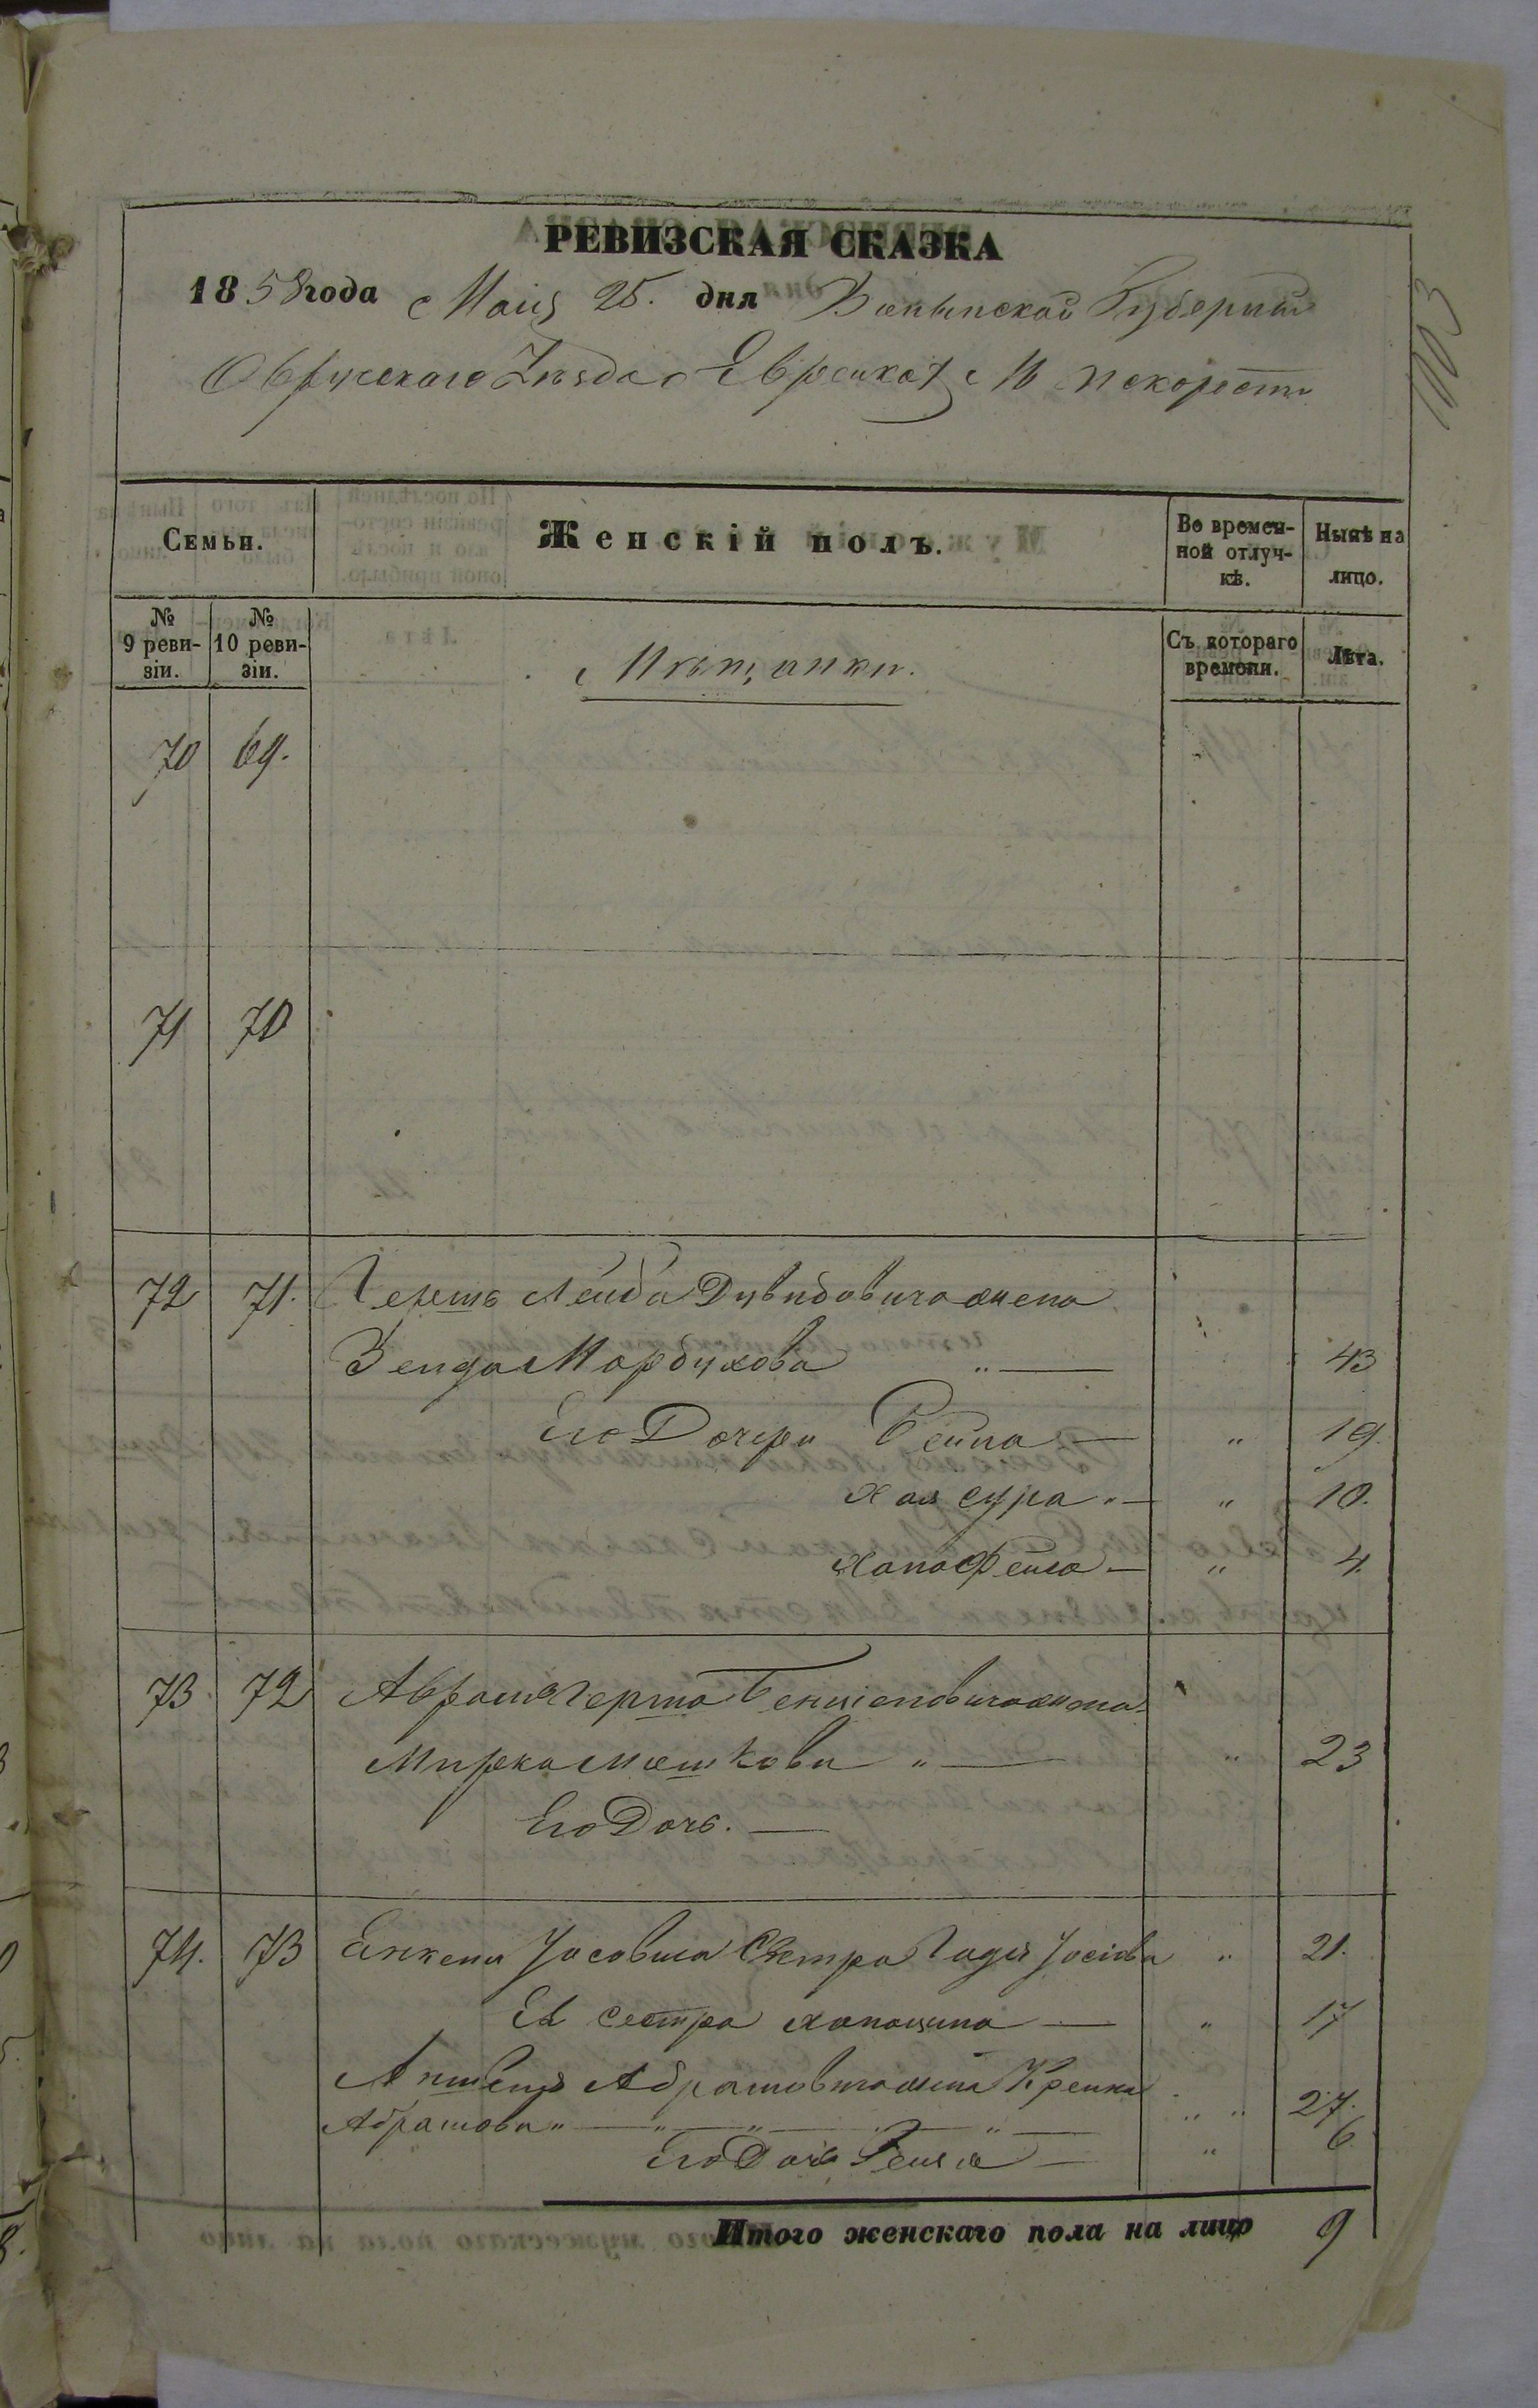 РЕВИЗСКАЯ СКАЗКА
1858 года Маія 25. дня Волынской Губерніи
Овручскаго Уезда о Еврейках М Искорости
1103
Семьи.
Женскій полъ.
Во времен-
ной отлуч-
кѣ.
Нынѣ на
лицо.
№
9 реви-
зіи.
№
10 реви-
зіи.
Мѣщанки.
Съ котораго
времени.
Лѣта.
70 69.
71 70
72 71. Гершъ Лейба Давидовича жена
Мордухова " — 43
Его Дочери Бейла — " 19.
Хая Сура " — " 10.
Хана Фейга — " 4.
73 72 Абрама Герша жена
Мирка Мошкова " — " 23
Его Дочь. —
74. 73 Янкеля Іосовича Сестра Іосіова " 21.
Ея сестра — " 17
Абрамовича жена Крейна
Абрамова " — " — " — " — " " 27.
Его Дочь — " 6
Итого женскаго пола на лицо 9